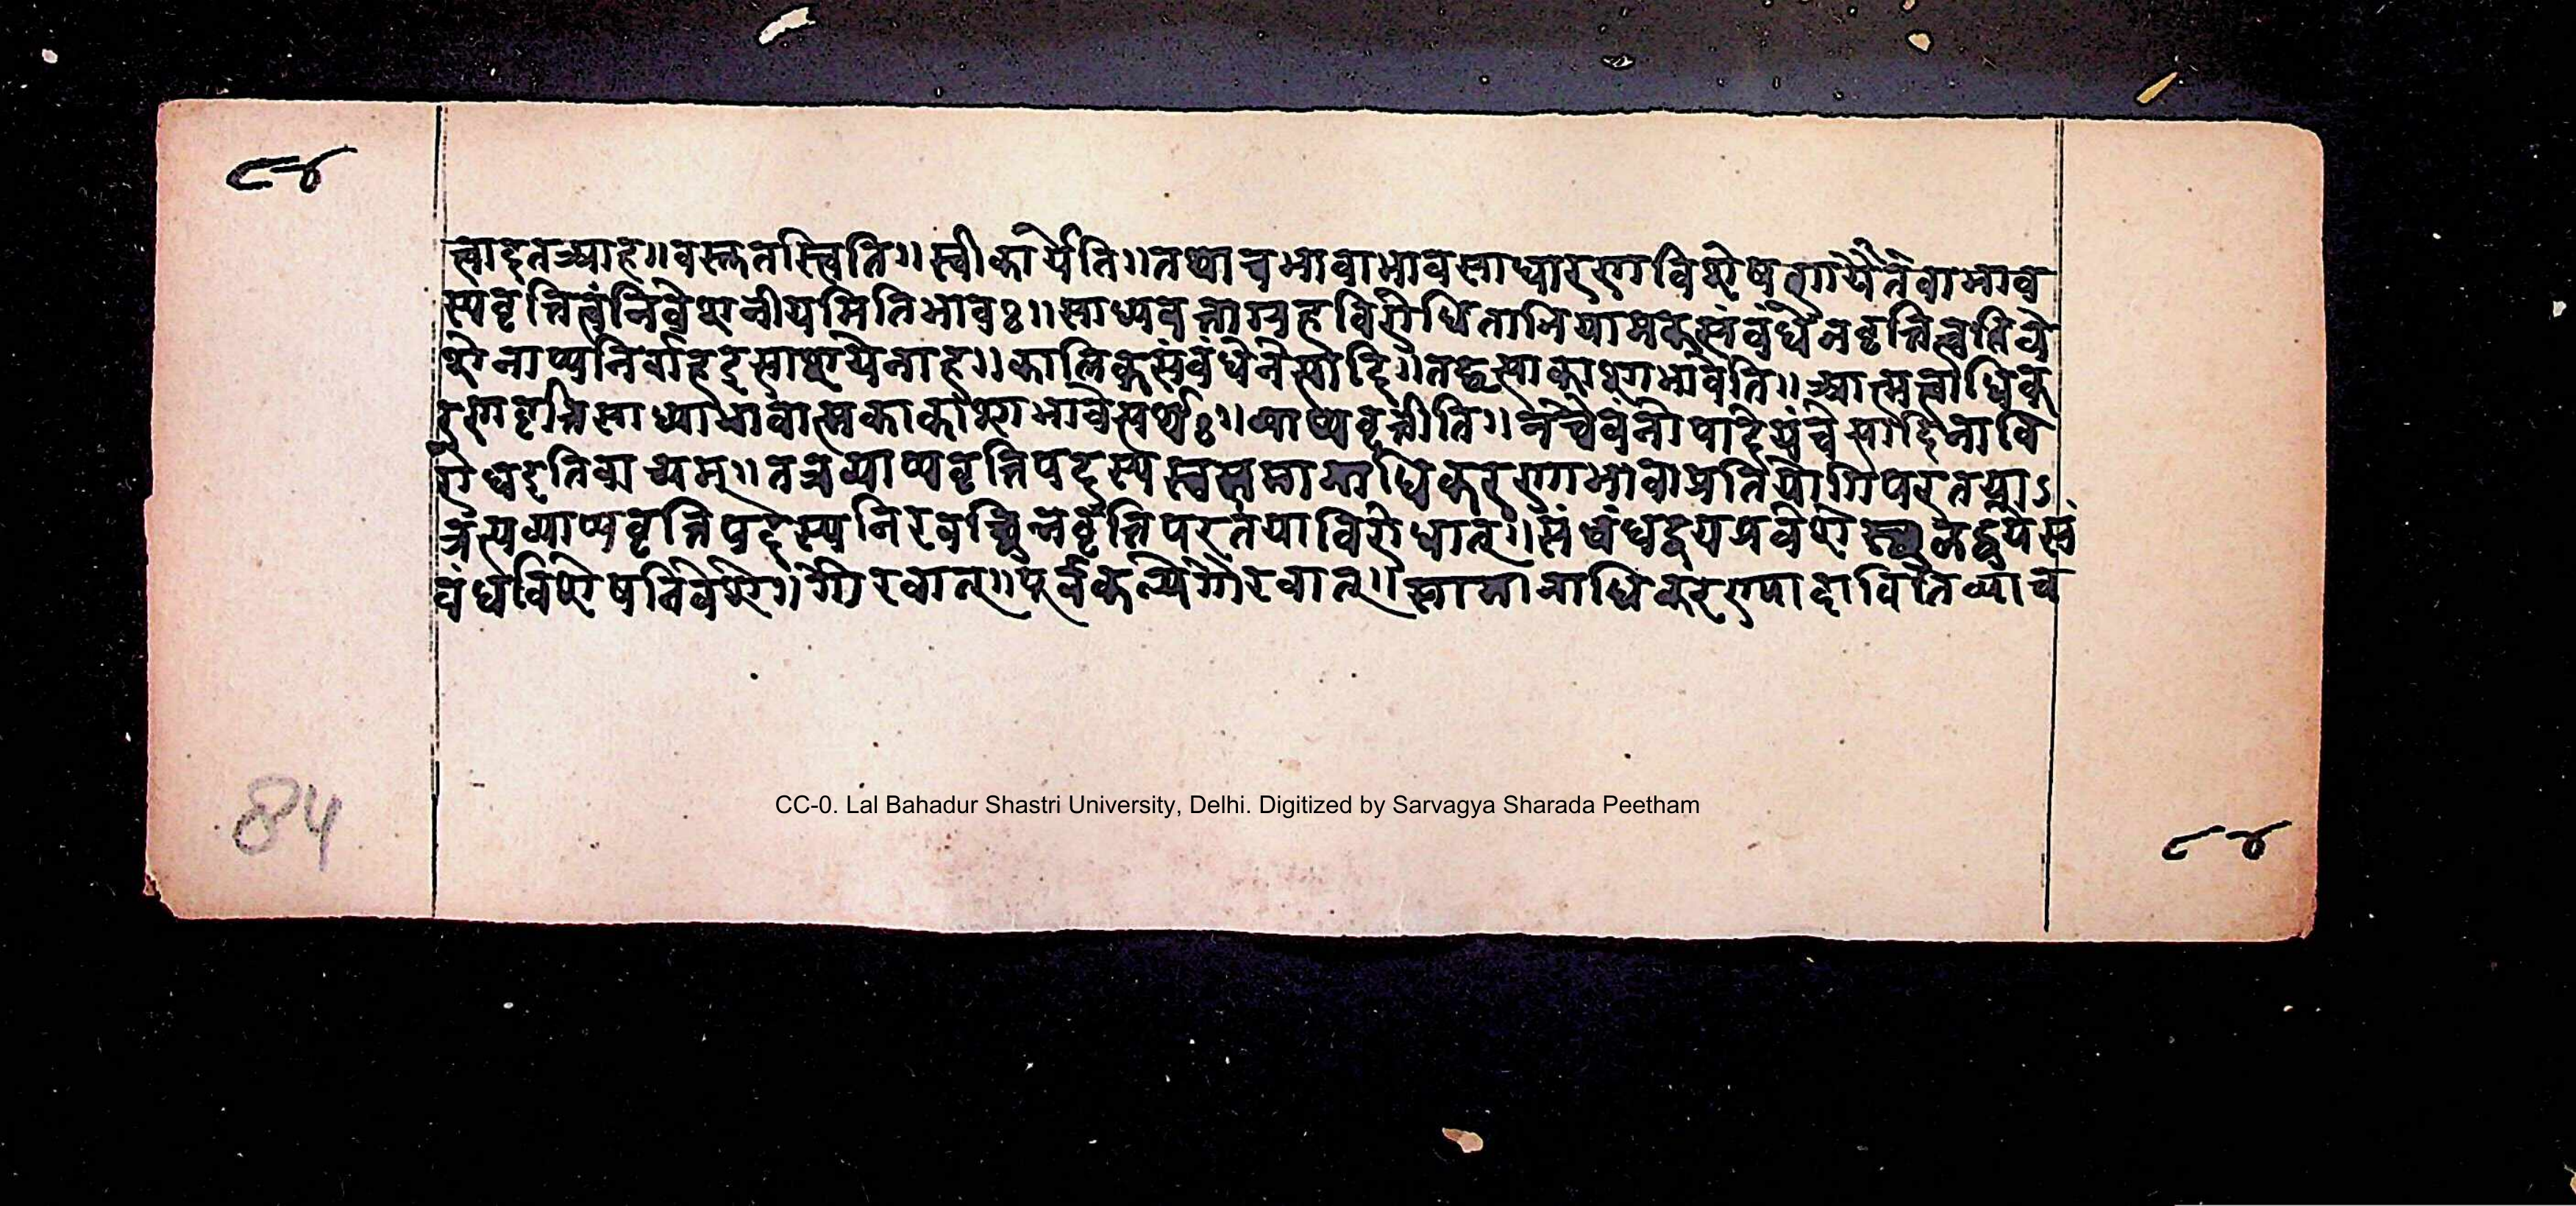 ८४
त्वादत आह॥वस्तुतस्त्विति॥स्वीकार्येति॥तथाचभावाभावसाधारणविशेषणतयैवाभाव
स्यवृत्तित्वंनिवेशनीयमितिभावः॥साध्यवत्ताग्रहविरोधितानियामकसंबंधेनवृत्तित्वनिवे
शेनाप्यनिर्वाहइत्याशयेनाह॥कालिकसंबंधेनेत्यादि॥तद्वत्याकाशाभावेति॥आत्मत्वाधिक
रणवृत्तिसाध्याभावात्मकाकाशाभावेत्यर्थः॥व्याप्यवृत्तीति॥नचैवंनोपादेयंचेत्यादिनावि
रोधइतिवाच्यम्॥तत्रव्याप्यवृत्तिपदस्यस्वसमानाधिकरणाभावाप्रतियोगिपरतयाऽ
त्रत्यव्याप्यवृत्तिपदस्यनिरवच्छिन्नवृत्तिपरतयाविरोधात्॥संबंधद्वयप्रवेशे
बंधविशेषनिवेशे॥गौरवात्॥पूर्वकल्पेगौरवात्॥सामानाधिकरण्यादावितिव्याच
84
CC-0. Lal Bahadur Shastri University, Delhi. Digitized by Sarvagya Sharada Peetham
८४